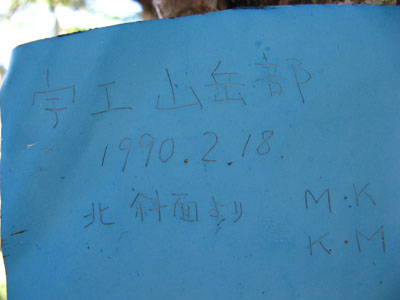 宇工山岳部
1990.2.18.
北斜面より M.K
K.M